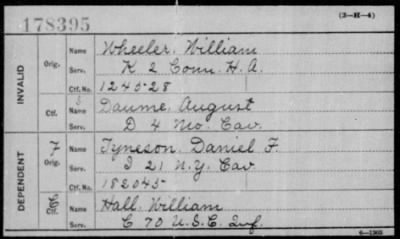 (3-H-4)
178395
INVALID
Orig.
Name Wheeler, William
Serv. K 2 Conn. H. A.
Ctf. No. 124528
Ctf.
Name Daume, August
Serv. D 4 Mo. Cav.
DEPENDENT
Orig.
Name Tyneson, Daniel F.
Serv. I 21 N.Y. Cav
Ctf. No. 182045
Ctf.
Name Hall, William
Serv. C 70 U.S.C. Inf.
6-1303